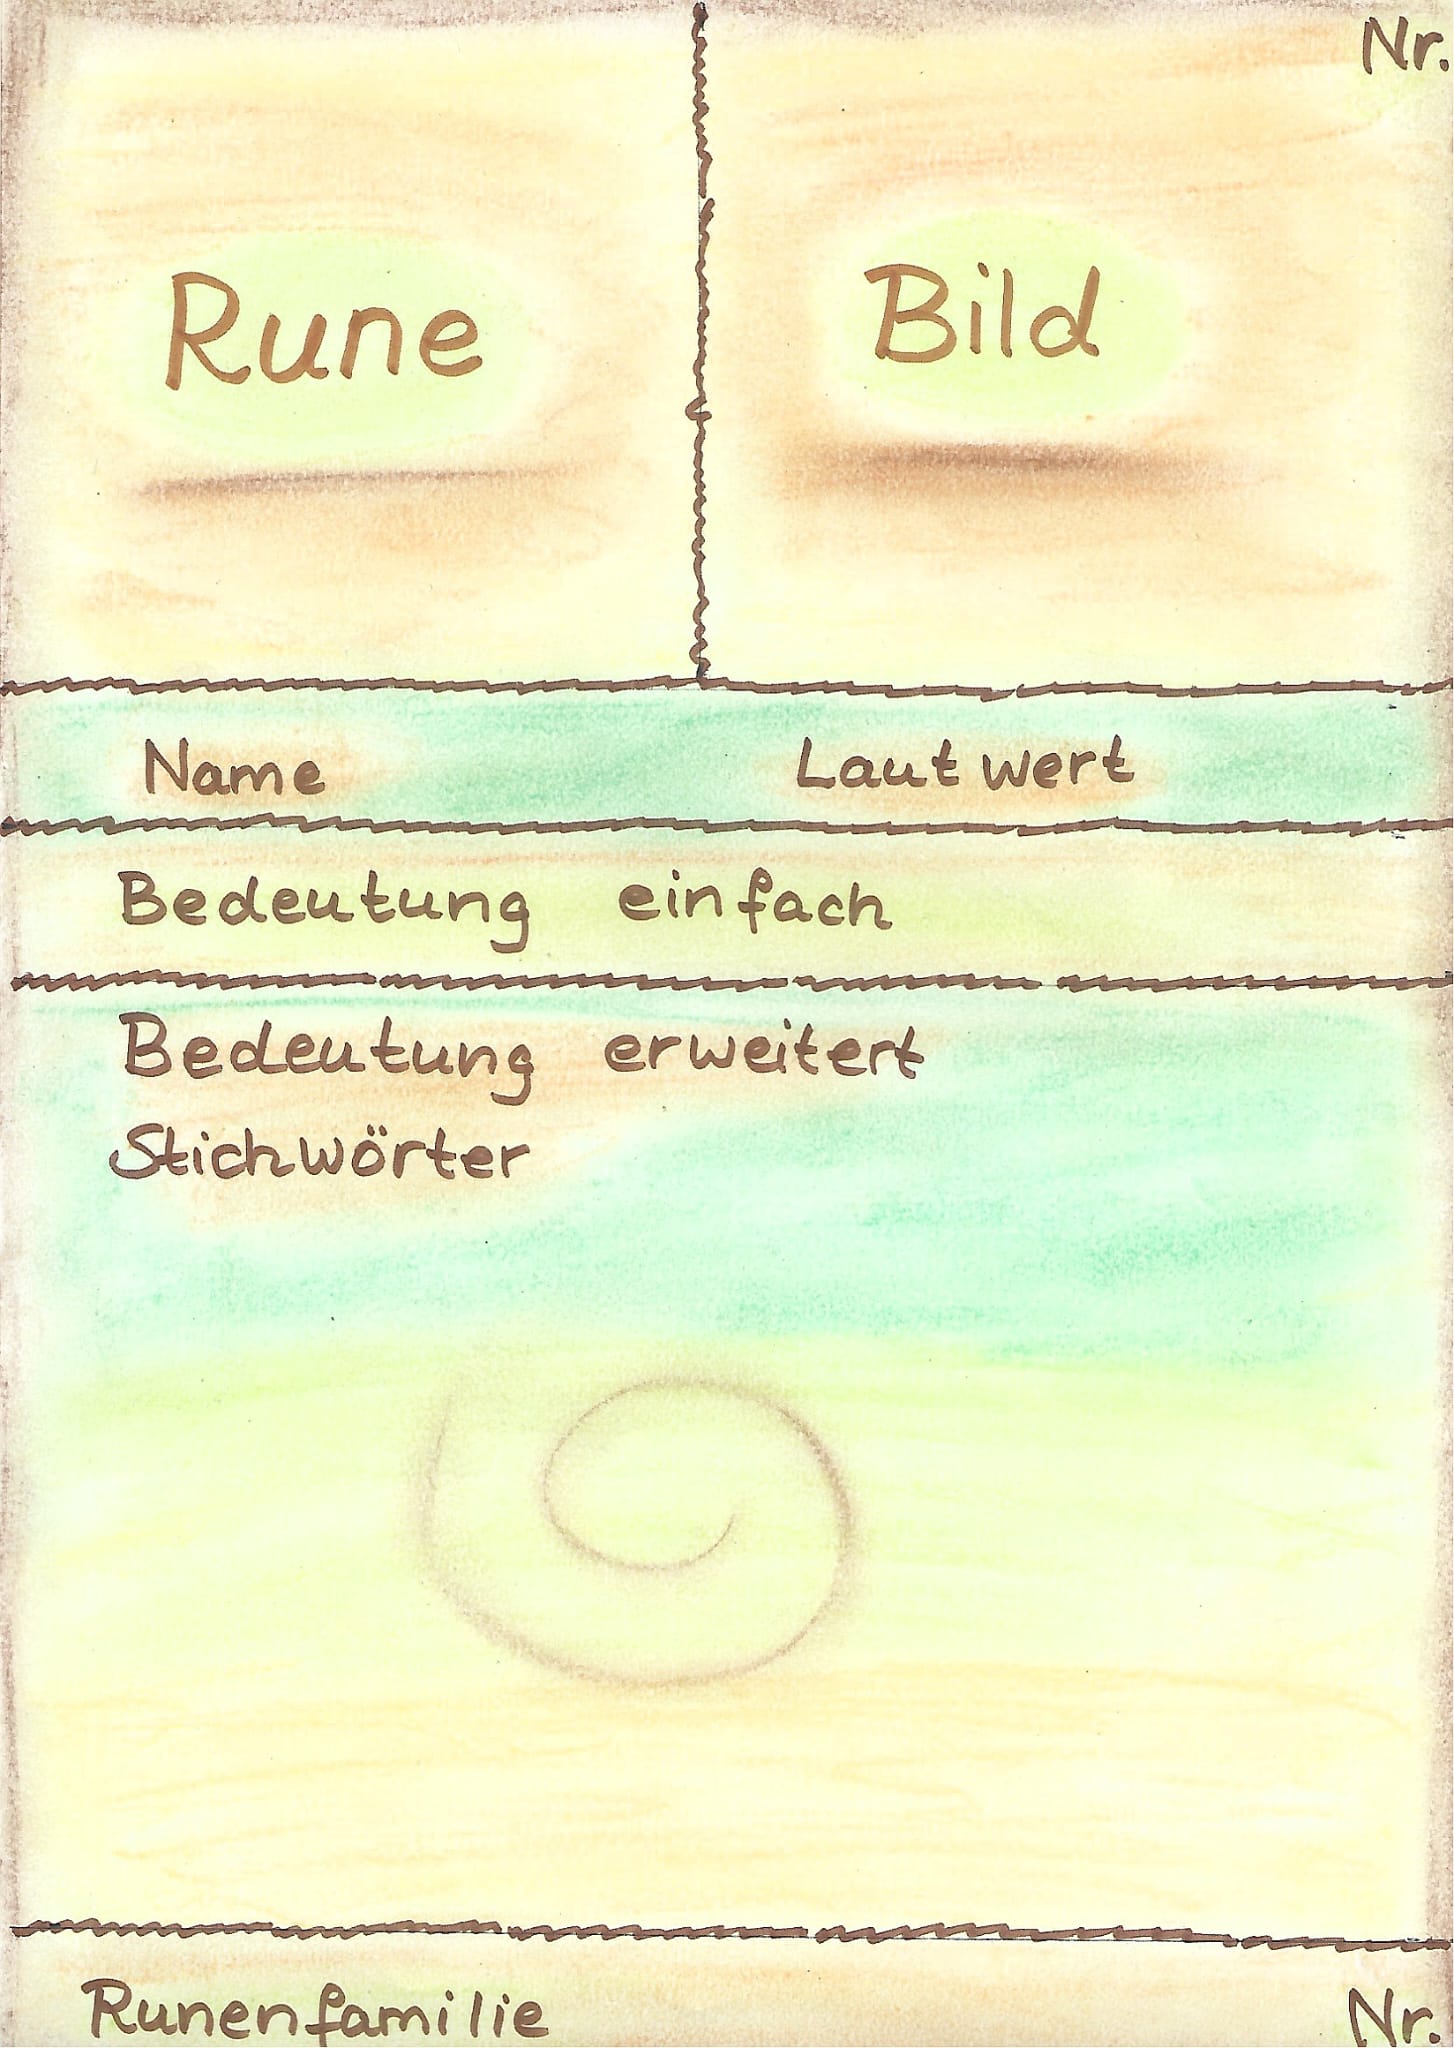 Nr.
Rune
Bild
Name Lautwert
Bedeutung einfach
Bedeutung erweitert
Stichwörter
Runenfamilie Nr.